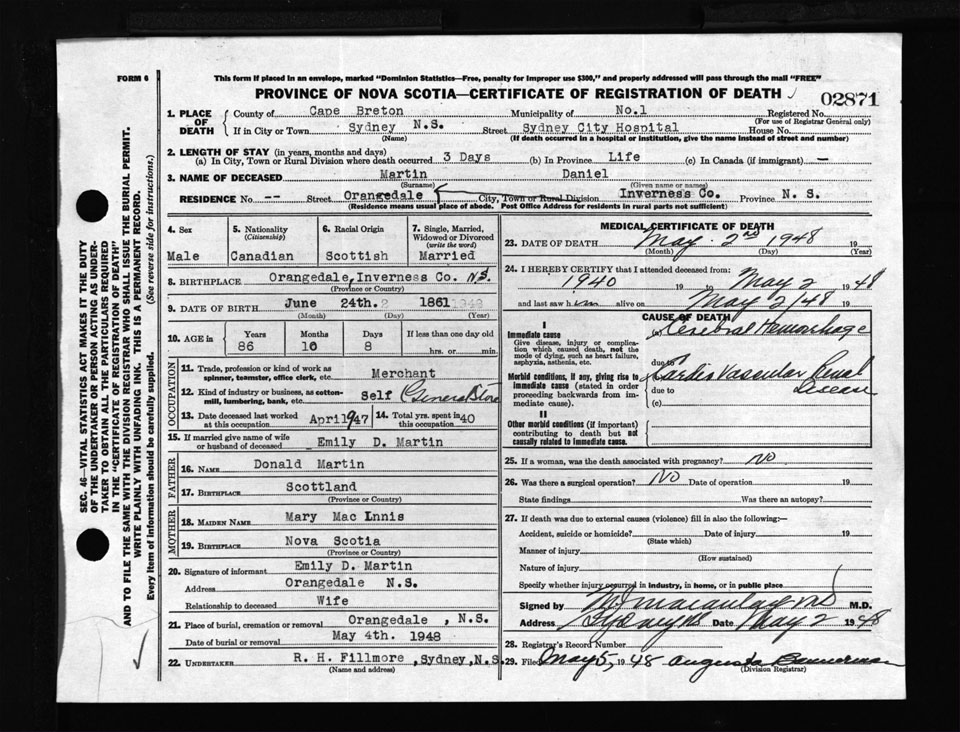 FORM 6
This form if placed in an envelope, marked "Dominion Statistics—Free, penalty for improper use $300," and properly addressed will pass through the mail "FREE"
PROVINCE OF NOVA SCOTIA—CERTIFICATE OF REGISTRATION OF DEATH
02871
SEC. 46—VITAL STATISTICS ACT MAKES IT THE DUTY
OF THE UNDERTAKER OR PERSON ACTING AS UNDER-
TAKER TO OBTAIN ALL THE PARTICULARS REQUIRED
IN THE "CERTIFICATE OF REGISTRATION OF DEATH"
AND TO FILE THE SAME WITH THE DIVISION REGISTRAR WHO SHALL ISSUE THE BURIAL PERMIT.
WRITE PLAINLY WITH UNFADING INK. THIS IS A PERMANENT RECORD.
Every item of information should be carefully supplied. (See reverse side for instructions.)
1. PLACE OF DEATH County of Cape Breton Municipality of No.1 Registered No.
(For use of Registrar General only)
If in City or Town Sydney N.S. Street Sydney City Hospital House No.
(Name) (If death occurred in a hospital or institution, give the name instead of street and number)
2. LENGTH OF STAY (in years, months and days)
(a) In City, Town or Rural Division where death occurred 3 Days (b) In Province Life (c) In Canada (if immigrant) —
3. NAME OF DECEASED Martin Daniel
(Surname) (Given name or names)
RESIDENCE No. -- Street Orangedale City, Town or Rural Division Inverness Co. Province N. S.
(Residence means usual place of abode. Post Office Address for residents in rural parts not sufficient)
4. Sex
Male
5. Nationality
(Citizenship)
Canadian
6. Racial Origin
Scottish
7. Single, Married,
Widowed or Divorced
(write the word)
Married
8. BIRTHPLACE Orangedale, Inverness Co. N.S.
(Province or Country)
9. DATE OF BIRTH June 24th. 1861
(Month) (Day) (Year)
10. AGE in Years Months Days If less than one day old
86 10 8 hrs. or min.
OCCUPATION
11. Trade, profession or kind of work as
spinner, teamster, office clerk, etc. Merchant
12. Kind of industry or business, as cotton-
mill, lumbering, bank, etc. Self General Store
13. Date deceased last worked
at this occupation April 1947
14. Total yrs. spent in
this occupation 40
15. If married give name of wife
or husband of deceased Emily D. Martin
FATHER
16. NAME Donald Martin
17. BIRTHPLACE Scottland
(Province or Country)
MOTHER
18. MAIDEN NAME Mary Mac Innis
19. BIRTHPLACE Nova Scotia
(Province or Country)
20. Signature of informant Emily D. Martin
Address Orangedale N.S.
Relationship to deceased Wife
21. Place of burial, cremation or removal Orangedale , N.S.
Date of burial or removal May 4th. 1948
22. UNDERTAKER R. H. Fillmore , Sydney, N.S.
(Name and address)
MEDICAL CERTIFICATE OF DEATH
23. DATE OF DEATH May 2nd 1948 19
(Month) (Day) (Year)
24. I HEREBY CERTIFY that I attended deceased from:
1940 19 to May 2 1948
and last saw him alive on May 2/48 19
CAUSE OF DEATH
I
Immediate cause
Give disease, injury or complica-
tion which caused death, not the
mode of dying, such as heart failure,
asphyxia, asthenia, etc.
(a) Cerebral Hemorrhage
due to
Morbid conditions, if any, giving rise to
immediate cause (stated in order
proceeding backwards from im-
mediate cause).
Cardio Vascular Renal
due to Disease
(c)
II
Other morbid conditions (if important)
contributing to death but not
causally related to immediate cause.
25. If a woman, was the death associated with pregnancy? No
26. Was there a surgical operation? No Date of operation 19
State findings Was there an autopsy?
27. If death was due to external causes (violence) fill in also the following:—
Accident, suicide or homicide? Date of injury 19
(State which)
Manner of injury
(How sustained)
Nature of injury
Specify whether injury occurred in industry, in home, or in public place
Signed by Macaulay MD M.D.
Address Sydney NS Date May 2 1948
28. Registrar's Record Number
29. Filed May 5, 1948 Augusta Bannerman
(Division Registrar)